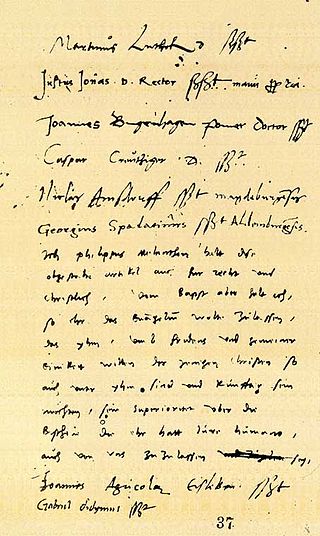 Martinus Luther D sßt
Justus Jonas D. Rector sßst. manu ppria.
Joannes Bugenhagen Pomer Doctor sßt
Caspar Creutziger D. sßt
Niclas Amsdorff sßt magdeburgensis
Georgius Spalatinus sßt Aldenburgensis.
Ich philippus Melanthon halt dise
obgestelte artikel auch fur recht und
christlich, vom Bapst aber halt ich,
so ehr das Euangelium wolte zulassen,
das yhm, umb fridens und gemeiner
Einikeit willen der jenigen christen so
auch unter yhm sind und kunfftig sein
mochten, sein Superioritet uber die
Bischoue die ehr hatt jure humano,
auch von uns zuzulassen sey,
Joannes Agricola Eisleben. sßt
Gabriel didymus sßt
37